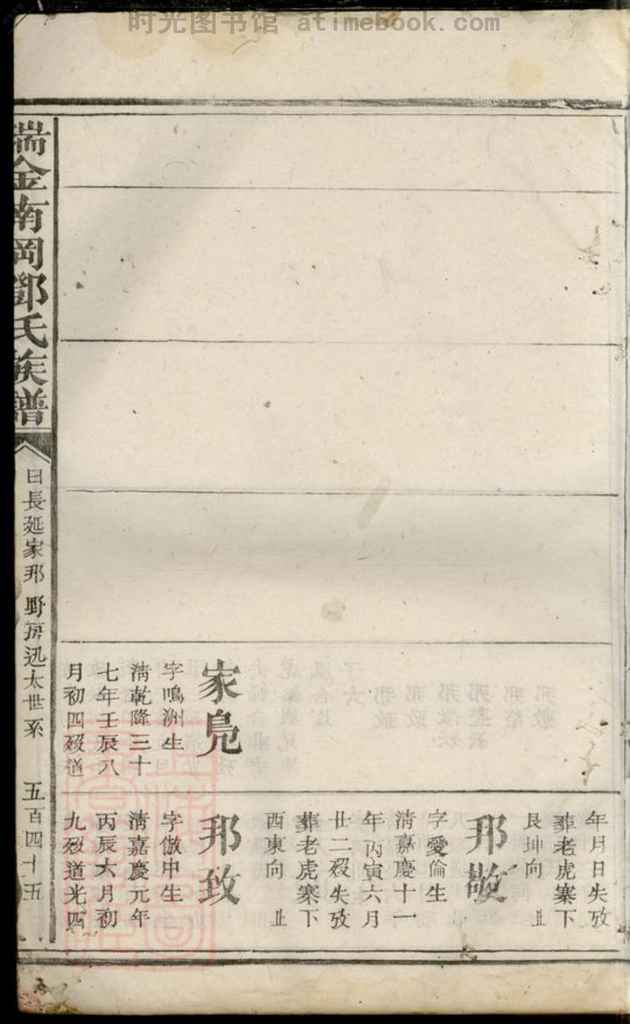 时光图书馆 atimebook.com
年月日失攷
葬老虎寨下
艮坤向
邦敬
字愛倫生
清嘉慶十一
年丙寅六月
廿二殁失攷
葬老虎寨下
酉東向
家鳧
字鳴洲生
清乾隆三十
七年壬辰八
月初四殁道
邦致
字傲中生
清嘉慶元年
丙辰六月初
九殁道光四
瑞金南岡鄧氏族譜
曰長延家邦 野房迅太世系
五百四十五